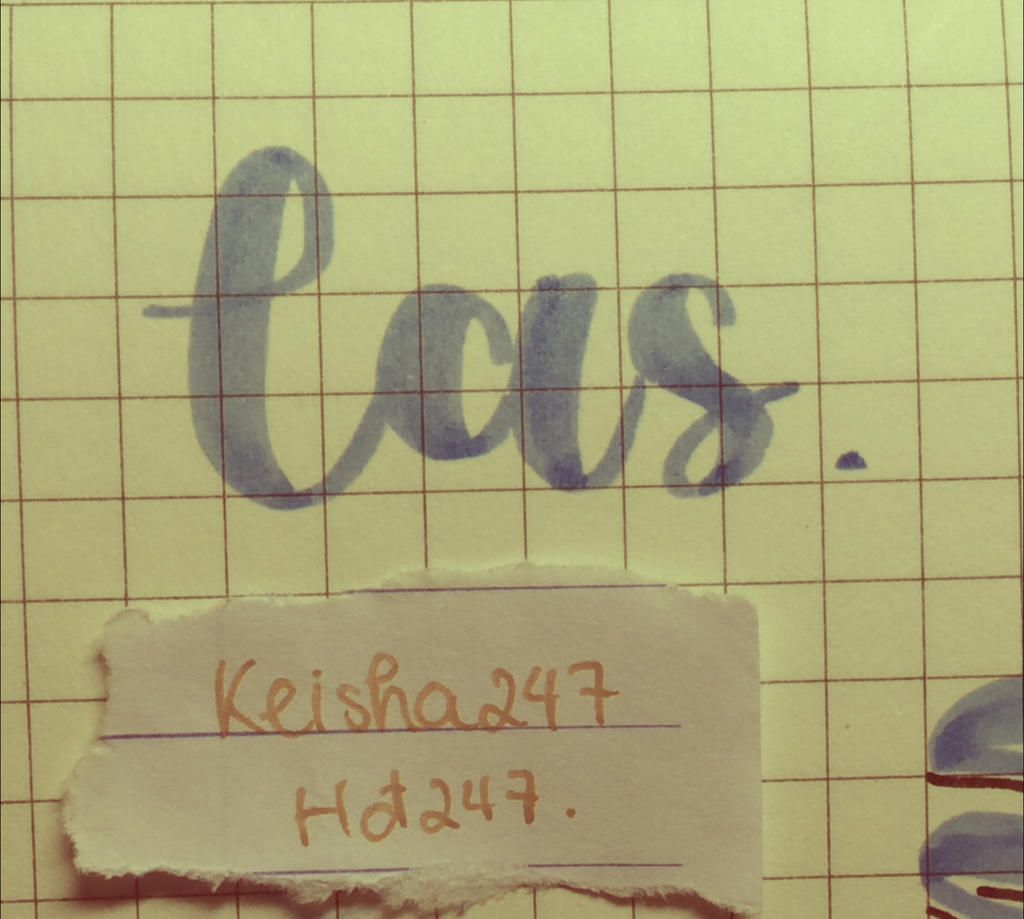 las.
Keisha247
Hot247.